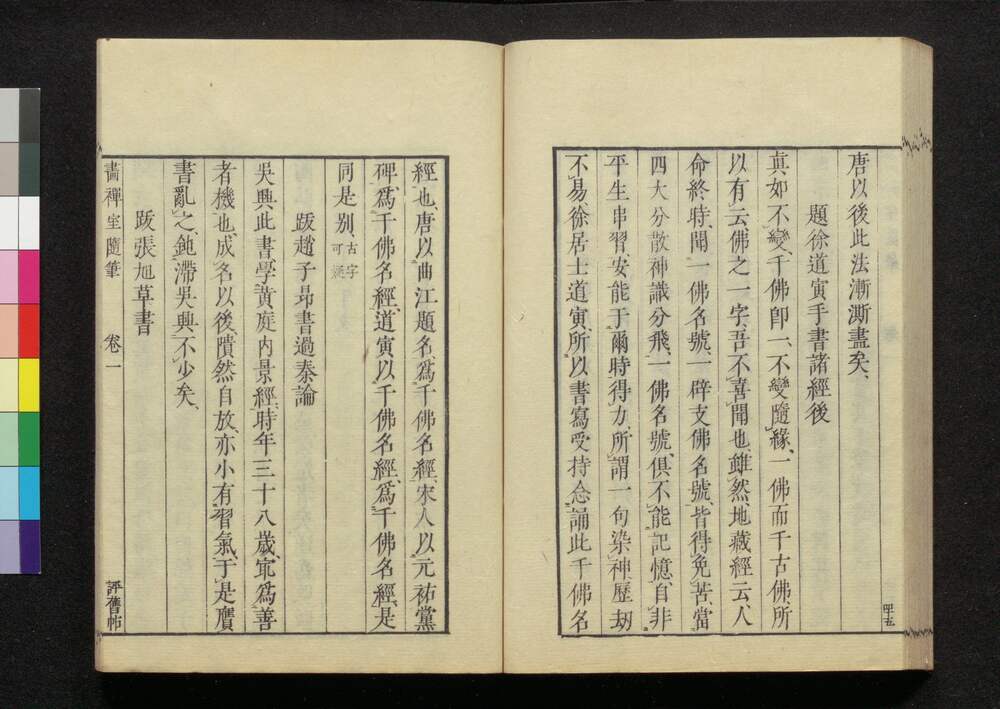 唐以後此法漸澌盡矣、
題徐道寅手書諸經後
眞如不變、千佛卽一、不變隨緣、一佛而千古佛、所
以有云佛之一字、吾不喜聞也、雖然、地藏經云、人
命終時、聞一佛名號、一辟支佛名號、皆得免苦、當
四大分散、神識分飛、一佛名號、俱不能記憶、自非
平生串習、安能于爾時得力、所謂一句染神、歷劫
不易、徐居士道寅、所以書寫受持念誦此千佛名
四十五
經也、唐以曲江題名、爲千佛名經、宋人以元祐黨
碑、爲千佛名經、道寅以千佛名經、爲千佛名經、是
同是別、古字可疑
跋趙子昻書過秦論
吳興此書學黃庭內景經、時年三十八歲、寔爲善
者機也、成名以後、隤然自放、亦小有習氣、于是贋
書亂之、鈍滯吳興不少矣、
跋張旭草書
畵禪室隨筆 卷一 評舊帖